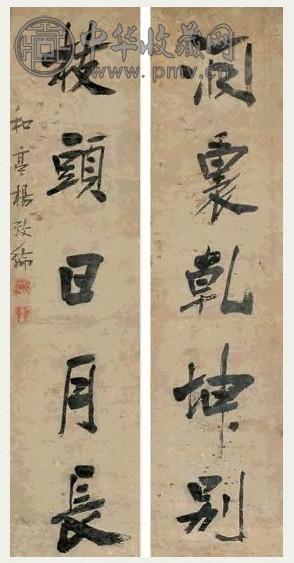 中华收藏网
www.pmv.cn
洞裏乾坤别
枝頭日月長
和亭楊